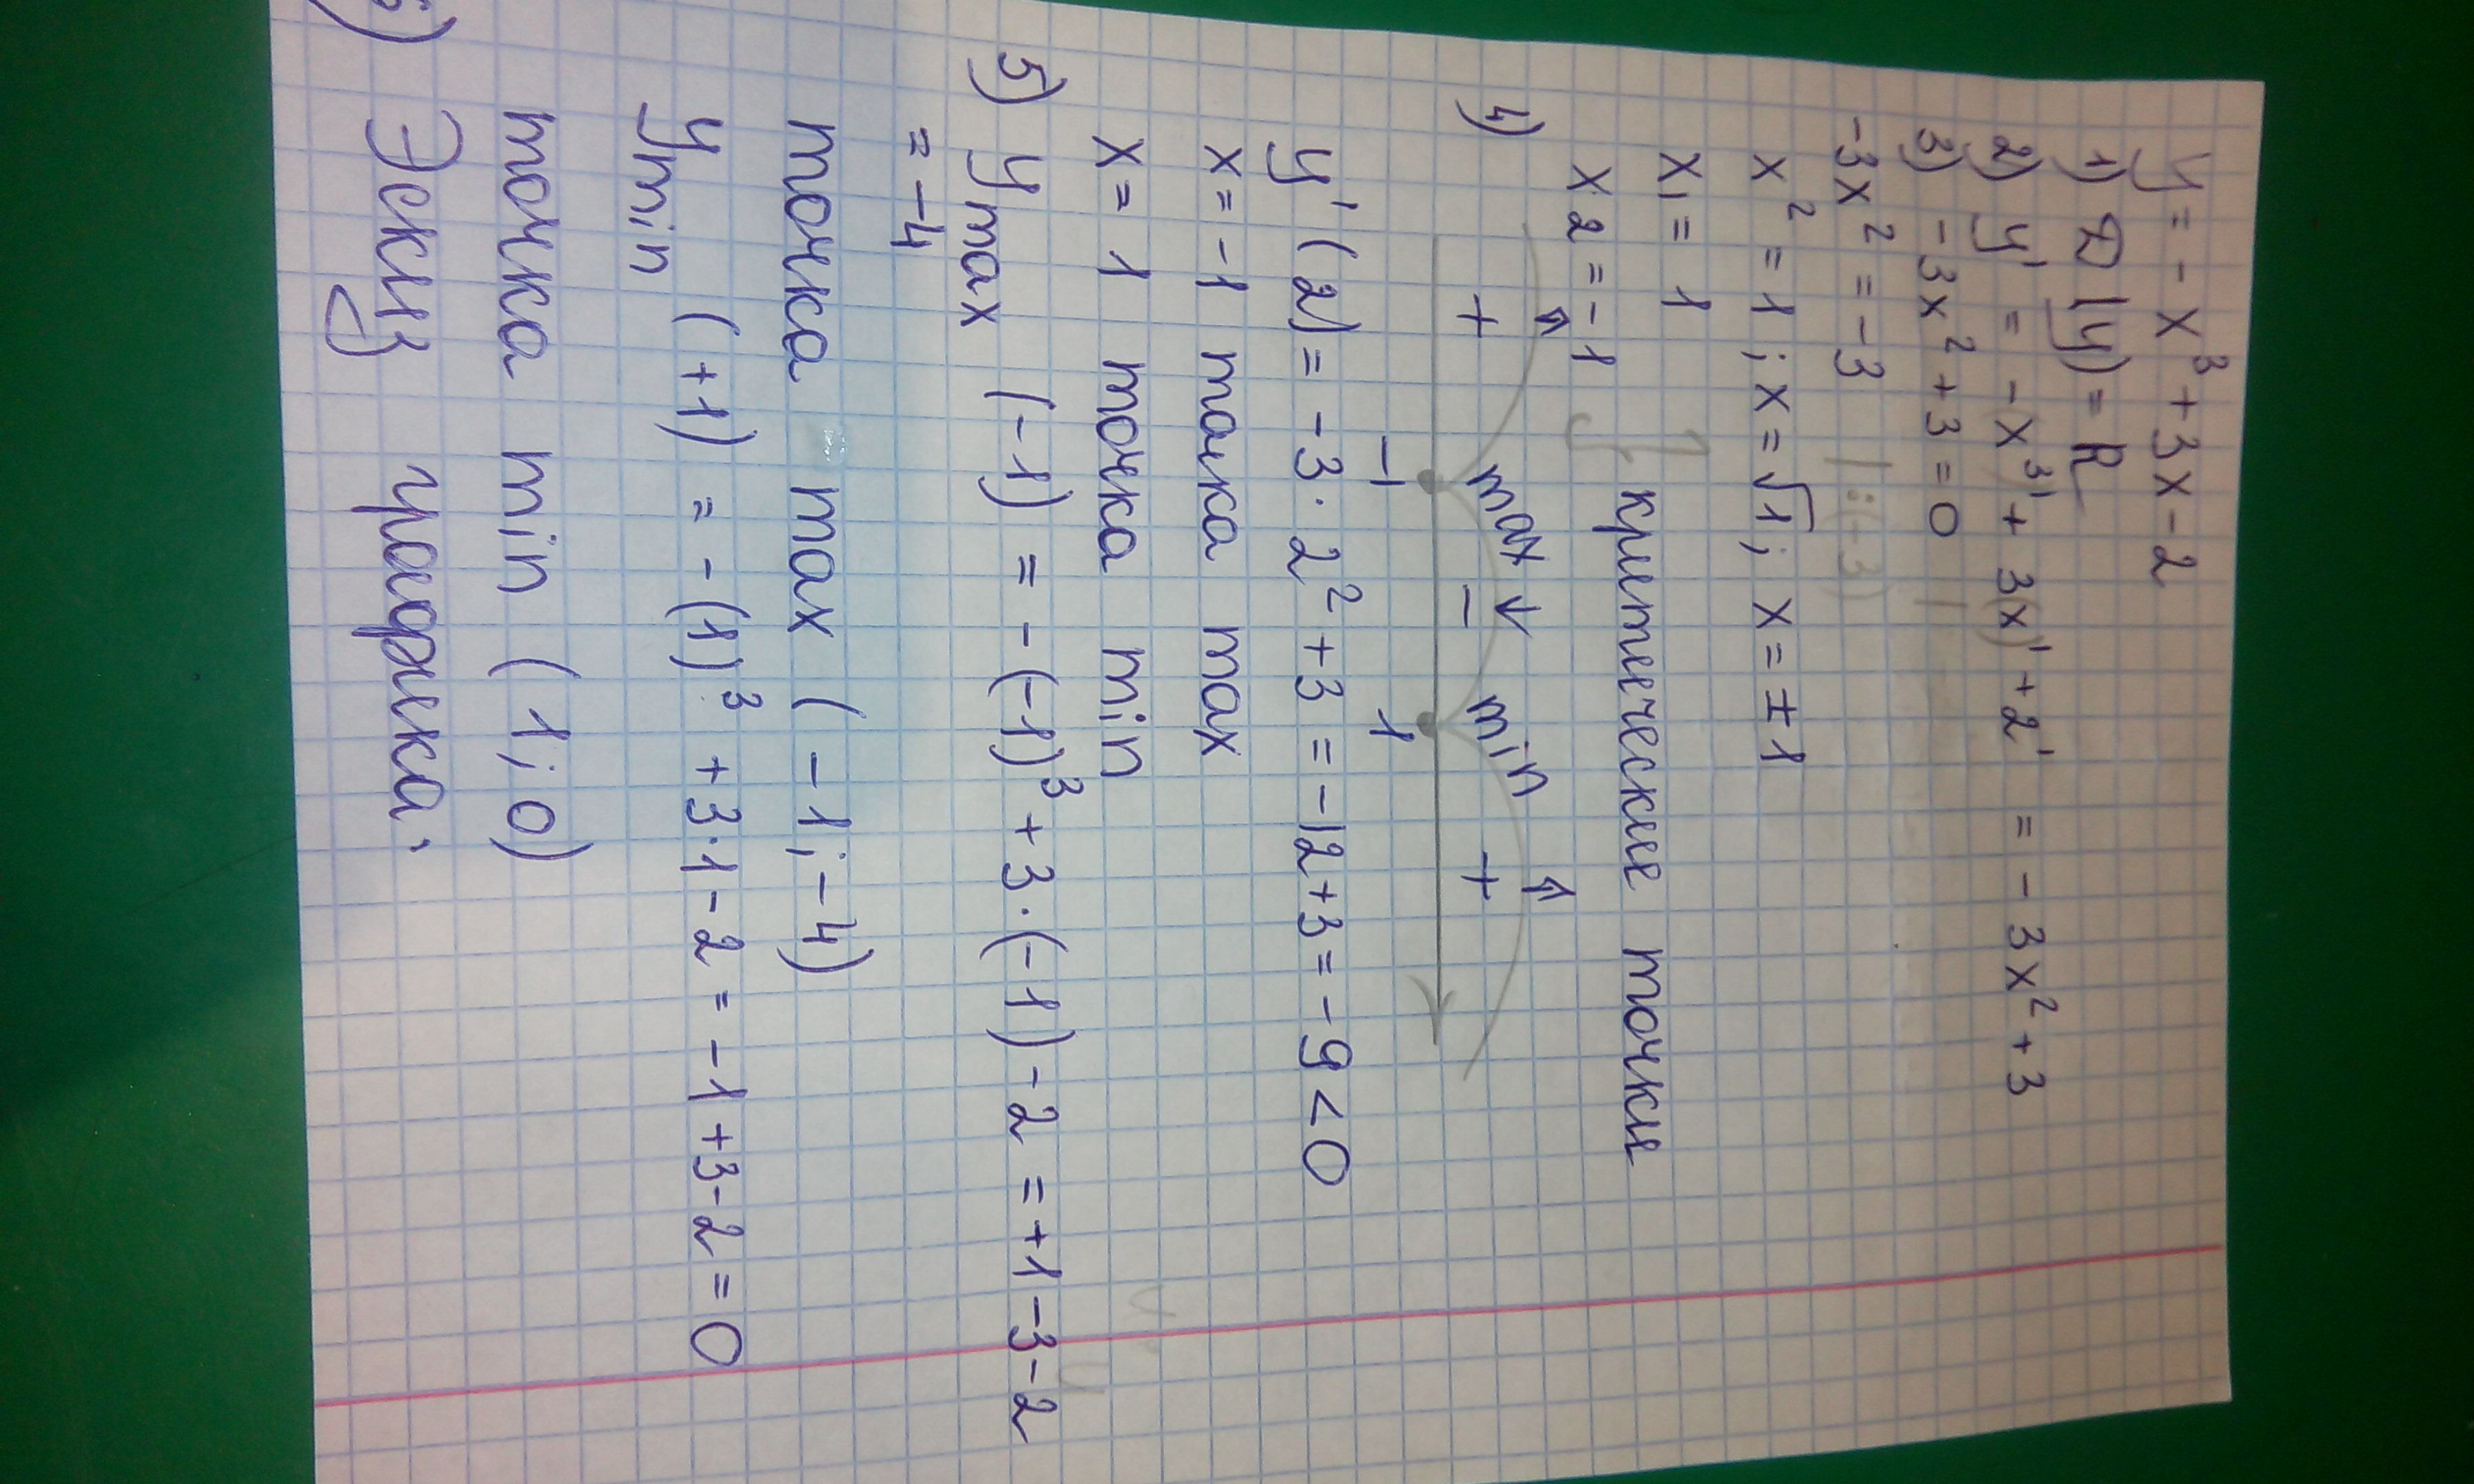 y = - x³ + 3x - 2
1) D(y) = R
2) y' = - x³' + 3(x)' + 2' = - 3x² + 3
3) - 3x² + 3 = 0
-3x² = -3 | :(-3)
x² = 1 ; x = √1 ; x = ± 1
x₁ = 1
x 2 = -1 } критические точки
4) ↑ max ↓ min ↑
+ − +
-1 1
y' (2) = -3 · 2² + 3 = -12 + 3 = -9 < 0
x = -1 точка max
x = 1 точка min
5) y max (-1) = - (-1)³ + 3 · (-1) - 2 = +1 -3 -2
= -4
точка max ( -1 ; -4)
y min (+1) = - (1)³ + 3·1 - 2 = -1 + 3 - 2 = 0
точка min ( 1 ; 0)
6) Эскиз графика.